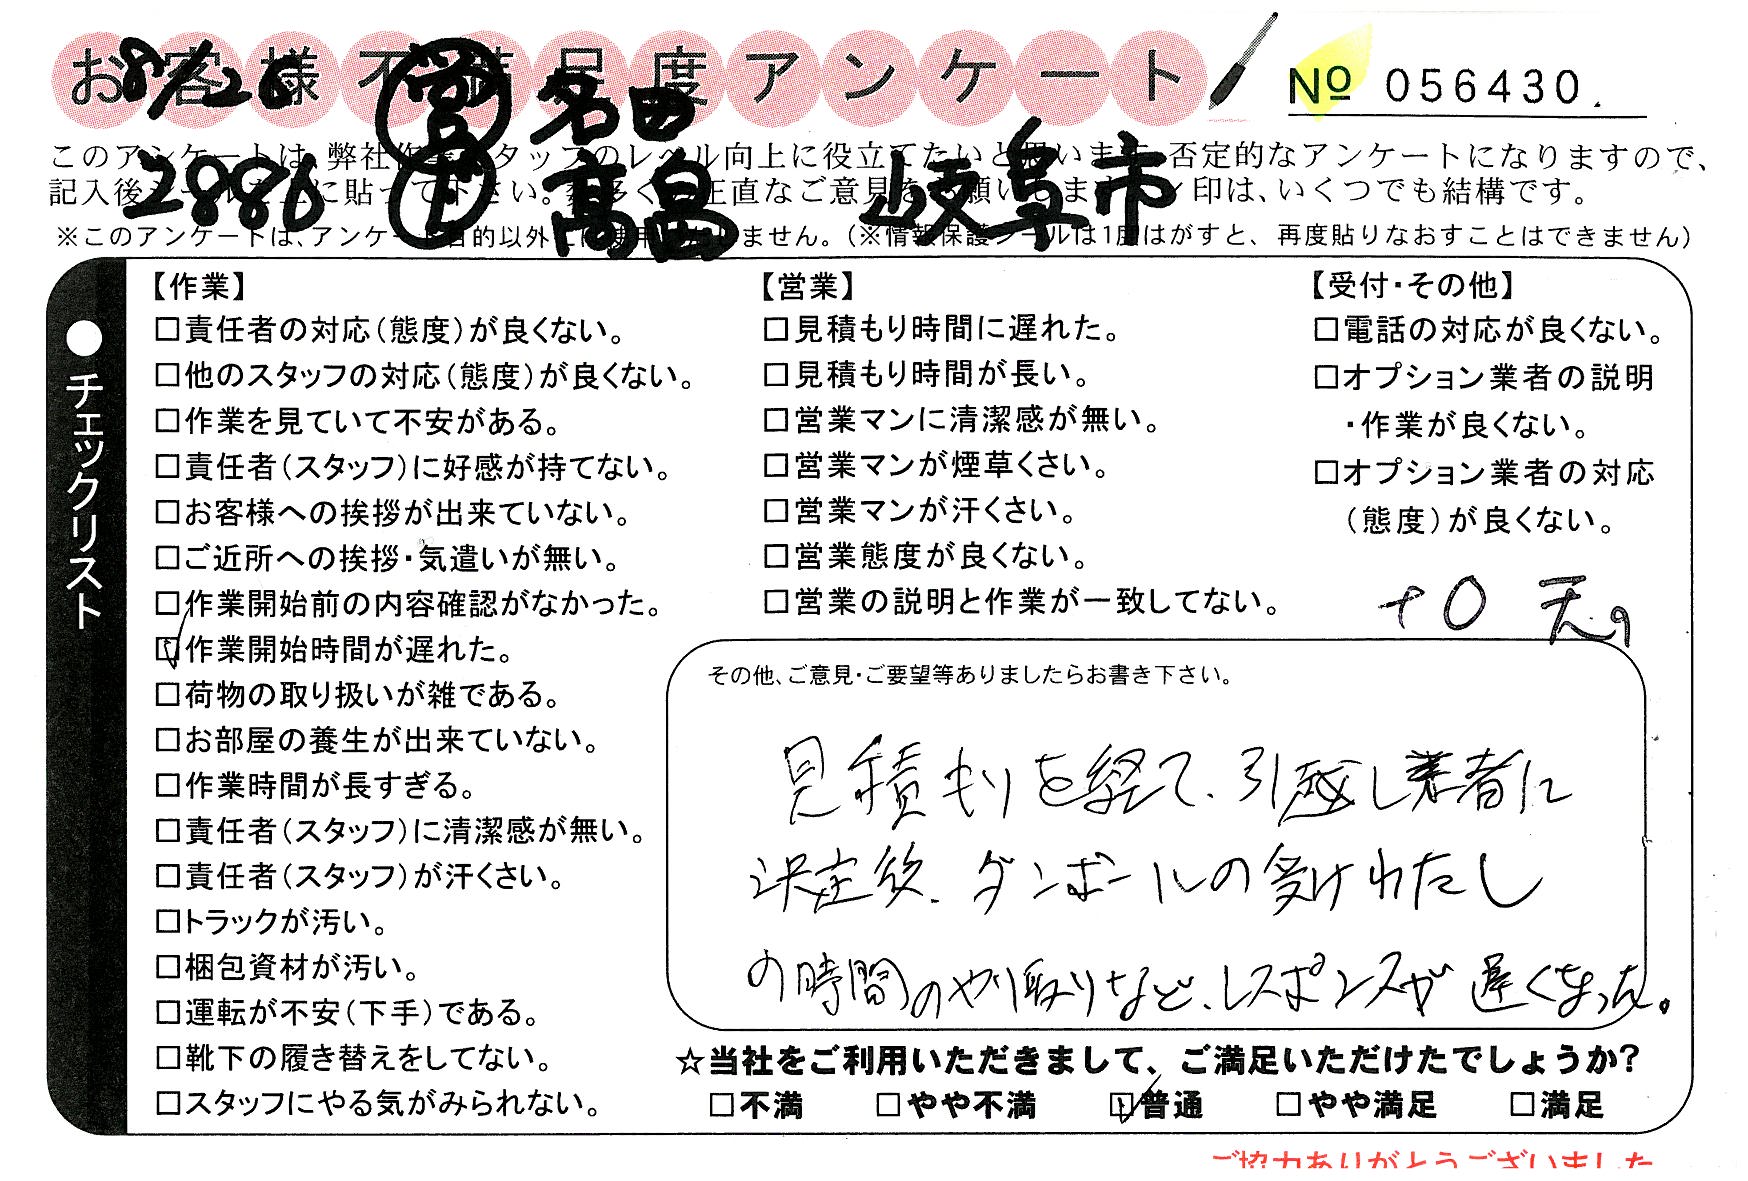 お客様不満足度アンケート
No 056430
8/26 営 名田
2886 下 高畠 岐阜市
このアンケートは、弊社作業スタッフのレベル向上に役立てたいと思います。否定的なアンケートになりますので、
記入後シールを上に貼って下さい。数多くの正直なご意見をお願いします。レ印は、いくつでも結構です。
※このアンケートは、アンケート目的以外には使用いたしません。(※情報保護シールは1度はがすと、再度貼りなおすことはできません)
●チェックリスト
【作業】
□責任者の対応(態度)が良くない。
□他のスタッフの対応(態度)が良くない。
□作業を見ていて不安がある。
□責任者(スタッフ)に好感が持てない。
□お客様への挨拶が出来ていない。
□ご近所への挨拶・気遣いが無い。
□作業開始前の内容確認がなかった。
☑作業開始時間が遅れた。
□荷物の取り扱いが雑である。
□お部屋の養生が出来ていない。
□作業時間が長すぎる。
□責任者(スタッフ)に清潔感が無い。
□責任者(スタッフ)が汗くさい。
□トラックが汚い。
□梱包資材が汚い。
□運転が不安(下手)である。
□靴下の履き替えをしてない。
□スタッフにやる気がみられない。
【営業】
□見積もり時間に遅れた。
□見積もり時間が長い。
□営業マンに清潔感が無い。
□営業マンが煙草くさい。
□営業マンが汗くさい。
□営業態度が良くない。
□営業の説明と作業が一致してない。
【受付・その他】
□電話の対応が良くない。
□オプション業者の説明
・作業が良くない。
□オプション業者の対応
(態度)が良くない。
その他、ご意見・ご要望等ありましたらお書き下さい。
見積もりを経て、引越し業者に
決定後、ダンボールの受けわたし
の時間のやり取りなど、レスポンスが遅くなった。
☆当社をご利用いただきまして、ご満足いただけたでしょうか?
□不満 □やや不満 ☑普通 □やや満足 □満足
ご協力ありがとうございました